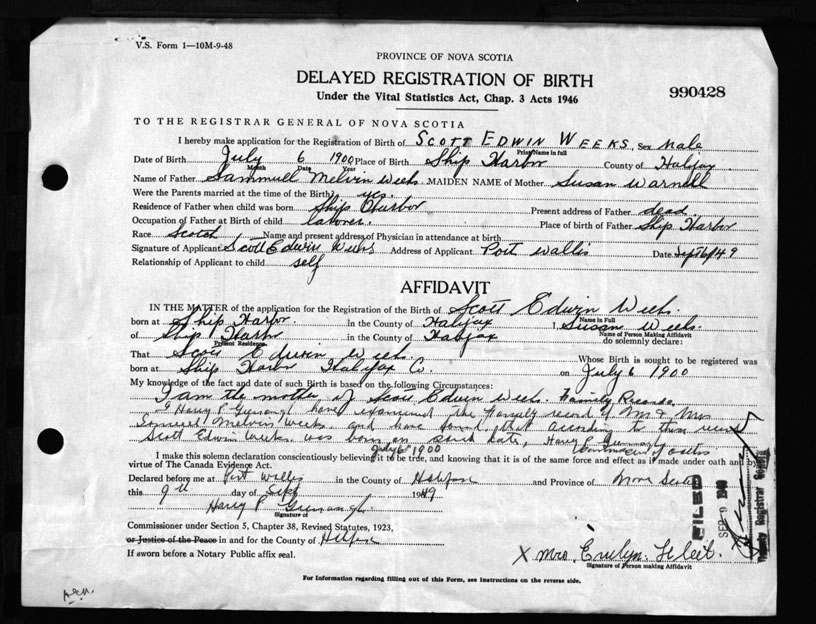 V.S. Form 1—10M-9-48
PROVINCE OF NOVA SCOTIA
DELAYED REGISTRATION OF BIRTH
990428
Under the Vital Statistics Act, Chap. 3 Acts 1946
TO THE REGISTRAR GENERAL OF NOVA SCOTIA
I hereby make application for the Registration of Birth of SCOTT EDWIN WEEKS, Sex Male
Print Name in full
Date of Birth July 6 1900 Place of Birth Ship Harbor County of Halifax
Month Date Year
Name of Father Sammuell Melvin Weeks MAIDEN NAME of Mother Susan Warnell
Were the Parents married at the time of the Birth? yes.
Residence of Father when child was born Ship Harbor Present address of Father dead
Occupation of Father at Birth of child laborer. Place of birth of Father Ship Harbor
Race Scotch Name and present address of Physician in attendance at birth
Signature of Applicant Scott Edwin Weeks Address of Applicant Port Wallis Date Sept 6/49
Relationship of Applicant to child self
AFFIDAVIT
IN THE MATTER of the application for the Registration of the Birth of Scott Edwin Weeks.
Name in Full
born at Ship Harbor. in the County of Halifax I, Susan Weeks.
Name of Person Making Affidavit
of Ship Harbor in the County of Halifax do solemnly declare:
Present Residence
That Scott Edwin Weeks. Whose Birth is sought to be registered was
born at Ship Harbor Halifax Co. on July 6 1900
My knowledge of the fact and date of such Birth is based on the following Circumstances:
I am the mother of Scott Edwin Weeks. Family Records.
I Harry P. have examined the family record of Mr & Mrs
Samuel Melvin Weeks and have found that according to these records
Scott Edwin Weeks was born on such date, Harry P.
July 6 1900 Commissioner of oaths
I make this solemn declaration conscientiously believing it to be true, and knowing that it is of the same force and effect as if made under oath and by
virtue of The Canada Evidence Act.
Declared before me at Port Wallis in the County of Halifax and Province of Nova Scotia
this 9th day of Sept 1949
Harry P.
Signature of
Commissioner under Section 5, Chapter 38, Revised Statutes, 1923,
or Justice of the Peace in and for the County of Halifax
If sworn before a Notary Public affix seal.
X Mrs Evelyn
Signature of Person making Affidavit
For Information regarding filling out of this Form, see Instructions on the reverse side.
FILED
SEP 9 1949
Deputy Registrar General